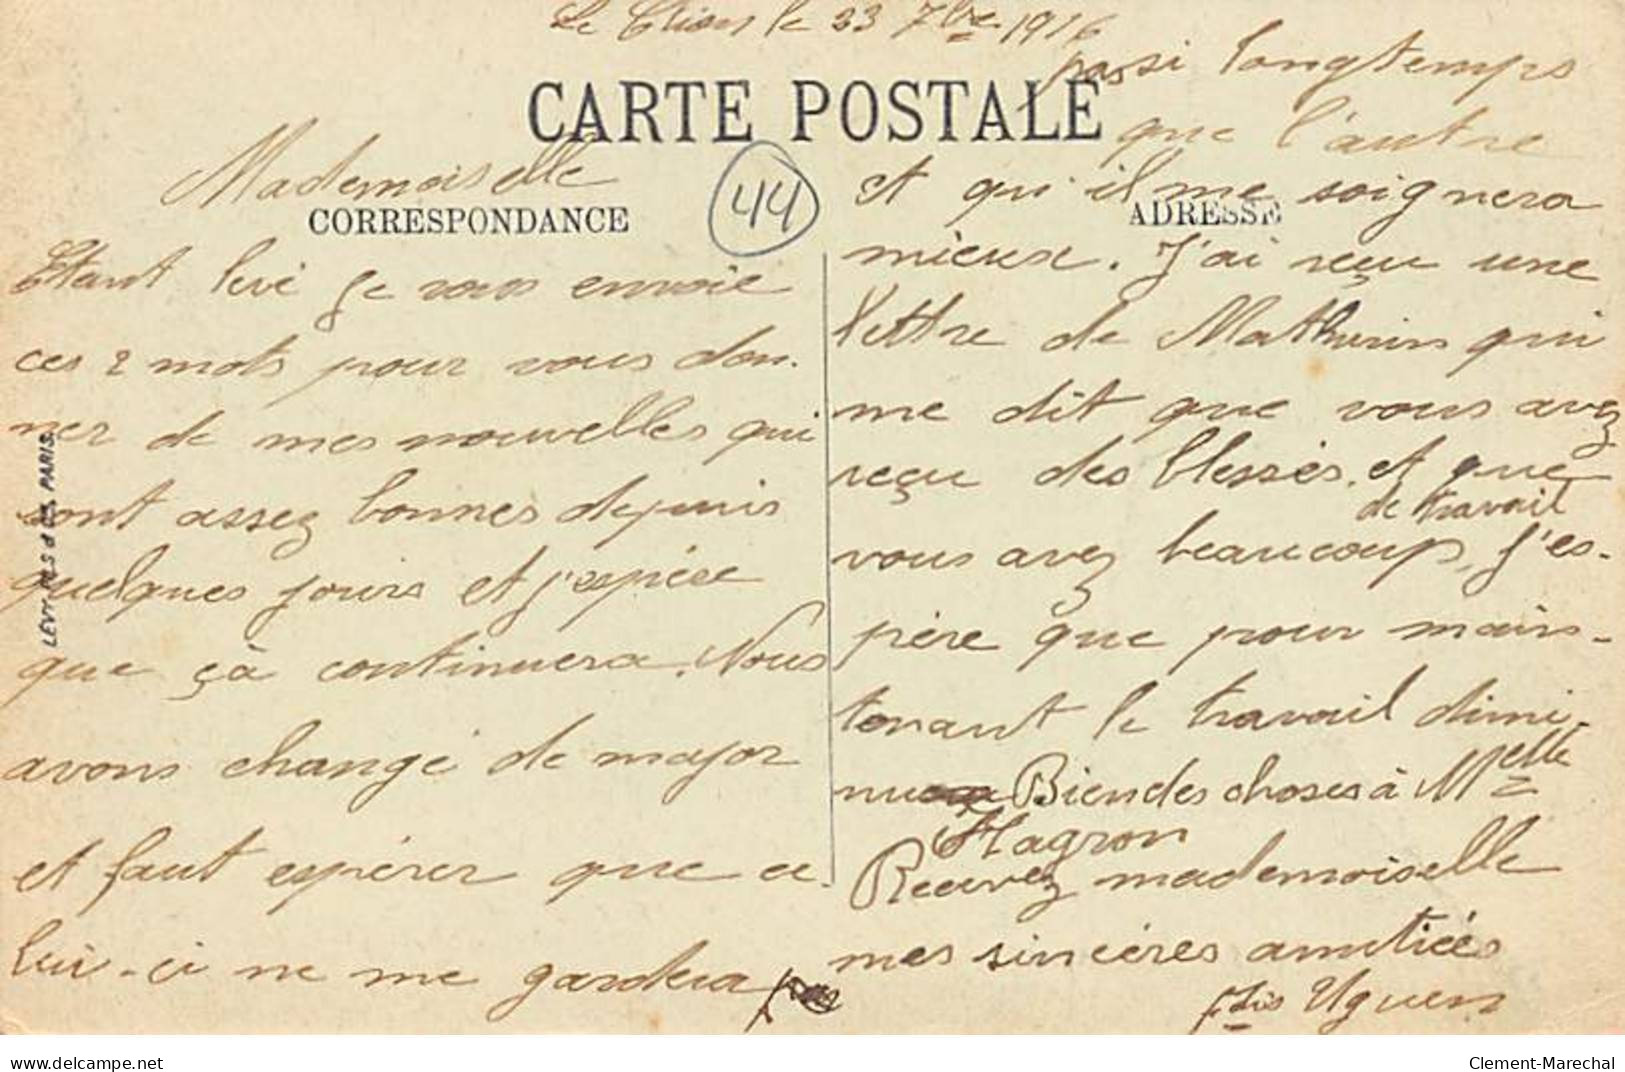 Le Clion le 23 7bre 1916
CARTE POSTALE
CORRESPONDANCE
ADRESSE
44
LEVY FILS & Cie. PARIS.
Mademoiselle
Etant levé je vous envoie
ces 2 mots pour vous don-
ner de mes nouvelles qui
sont assez bonnes depuis
quelques jours et j'espère
que çà continuera. Nous
avons changé de major
et faut espérer que ce-
lui-ci ne me gardera pas
pas si longtemps
que l'autre
et qui il me soignera
mieux. J'ai reçu une
lettre de Mathurin qui
me dit que vous avez
reçu des blessés. et que
de travail
vous avez beaucoup, j'es-
père que pour main-
tenant le travail dimi-
nue Bien des choses à Melle
Hagron
Recevez mademoiselle
mes sincères amitiées
fçois Uguen
delcampe.net
Clement-Marechal